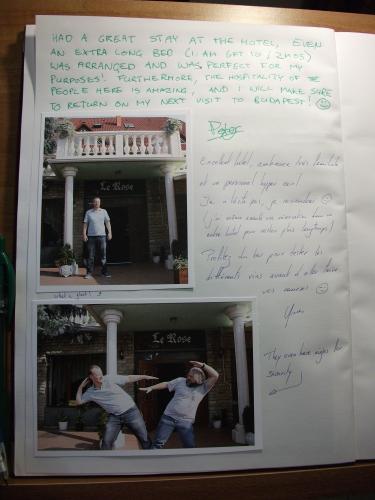 HAD A GREAT STAY AT THE HOTEL, EVEN
AN EXTRA LONG BED (I AM 6FT 10 / 2M05)
WAS ARRANGED AND WAS PERFECT FOR MY
PURPOSES! FURTHERMORE, THE HOSPITALITY OF THE
PEOPLE HERE IS AMAZING, AND I WILL MAKE SURE
TO RETURN ON MY NEXT VISIT TO BUDAPEST!
Peter
Le Rose
Excellent hotel, ambiance très familiale
et un personnel hyper cool!
J'y reviendrai
autre hotel pour rester plus longtemps!
Profitez du bar pour tester les
différents vins avant d'aller faire
vos
what a giant!
Le Rose
They even have for
security